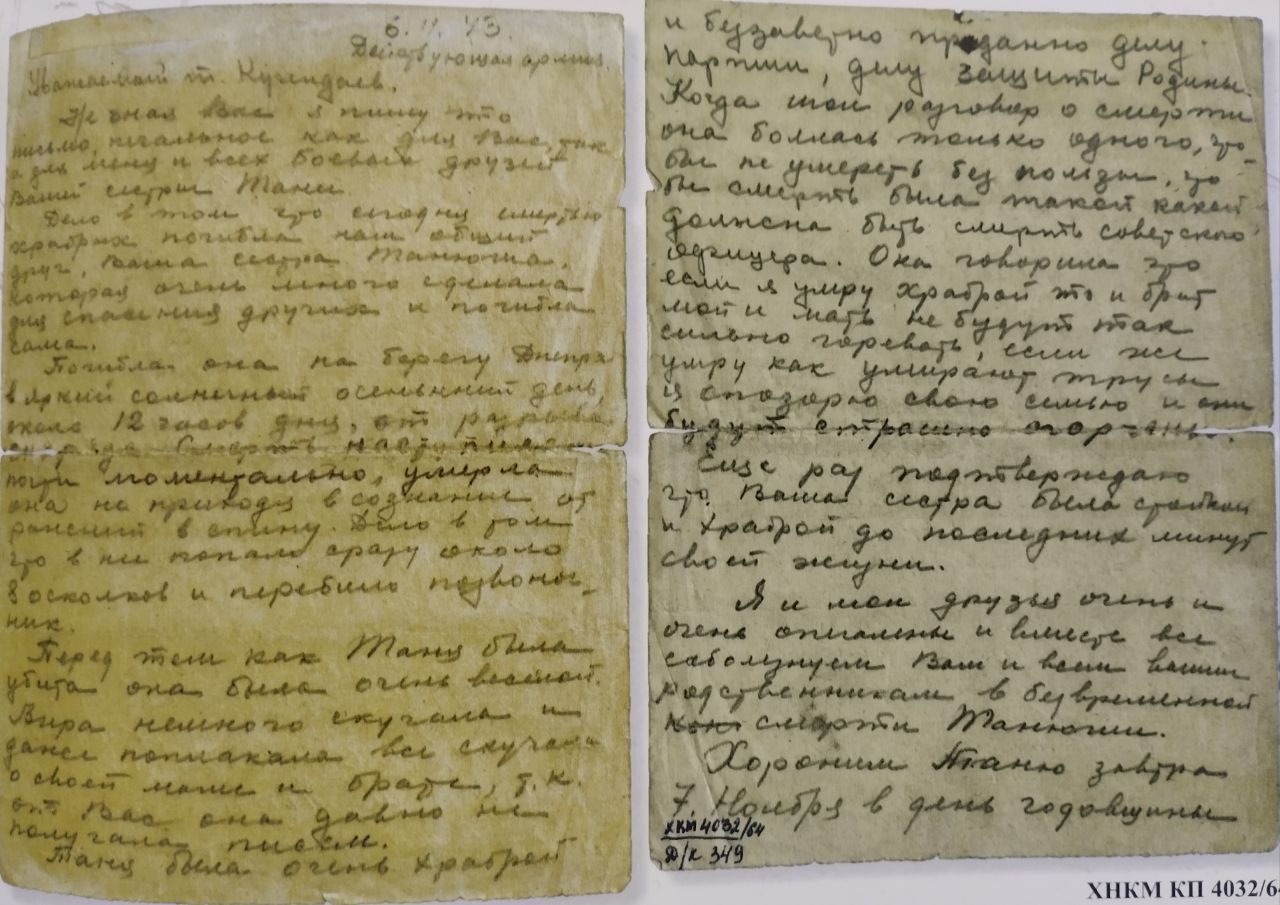 6.11.43.
Действующая армия.
Уважаемый т. Кучендаев.
Не зная Вас я пишу это
письмо, печальное как для Вас, так
и для меня и всех боевых друзей
Вашей сестры Тани.
Дело в том что сегодня смертью
храбрых погибла наш общий
друг, Ваша сестра Танюша,
которая очень много сделала
для спасения других и погибла
сама.
Погибла она на берегу Днепра
в яркий солнечный осеньний день,
около 12 часов дня, от разрыва
снаряда. Смерть наступила
почти моментально, умерла
она не приходя в сознание от
ранений в спину. Дело в том
что в нее попало сразу около
8 осколков и перебило позвоноч-
ник.
Перед тем как Таня была
убита она была очень веселой.
Вчера немного скучала и
даже поплакала все скучала
о своей маме и брате, т.к.
от Вас она давно не
получала писем.
Таня была очень храброй
и беззаветно преданно делу
партии, делу защиты Родины.
Когда шел разговор о смерти
она боялась только одного, что
бы не умереть без пользы, что
бы смерть была такой какой
должна быть смерть советского
офицера. Она говорила что
если я умру храброй то и брат
мой и мать не будут так
сильно горевать, если же
умру как умирают трусы
я опозорю свою семью и они
будут страшно огорчены.
Еще раз подтверждаю
что Ваша сестра была стойкой
и храброй до последних минут
своей жизни.
Я и мои друзья очень и
очень опечалены и вместе все
соболезнуем Вам и всем вашим
родственникам в безвременной
смерти Танюши.
Хороним Таню завтра
7. Ноября в день годовщины
ХКМ 4032/64
Д/к 349
ХНКМ КП 4032/64